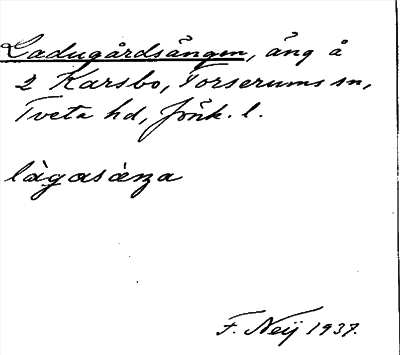 Ladugårdsängen, äng å
2 Karsbo, Torserums sn,
Tveta hd, Jönk. l.
làgasánza
F. Neij 1937.